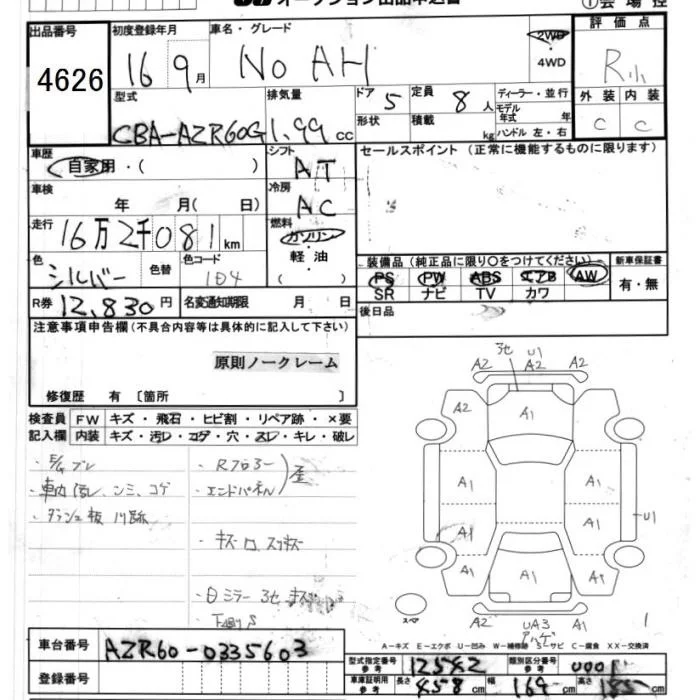 オークション出品申込書
①会場控
出品番号 4626
初度登録年月 16 9月
車名・グレード NOAH
2WD ・ 4WD
評価点 R小
型式 CBA-AZR60G
排気量 1.99 cc
ドア 5
定員 8人
形状 積載 kg
ディーラー・並行
モデル年式 年
ハンドル 左・右
外装 内装
C C
車歴 自家用・( )
シフト AT
セールスポイント (正常に機能するものに限ります)
車検 年 月( 日)
冷房 AC
走行 16万2千081km
燃料 ガソリン・軽・油 ( )
色 シルバー 色替
色コード 1D4
装備品 (純正品に限り○をつけてください) 新車保証書
PS PW ABS エアB AW 有・無
SR ナビ TV カワ
R券 12,830円
名変通知期限 月 日
後日品
注意事項申告欄(不具合内容等は具体的に記入して下さい)
原則ノークレーム
修復歴 有 〔箇所 〕
検査員 FW キズ・飛石・ヒビ割・リペア跡・×要
記入欄 内装 キズ・汚レ・コゲ・穴・スレ・キレ・破レ
・E/G ブレ
・車内 シミ、コゲ
・エンドパネル
歪
・キズ
ミラー
A2 U1 A2 A2
A2 A1 A2
A1 A1
A1 A1 U1
A1 A1 A1
スペア
A2 UA3 A2
ハゲ
A-キズ E-エクボ U-凹み W-補修跡 S-サビ C-腐食 XX-交換済
車台番号 AZR60-0335603
型式指定番号 参考 12542 類別区分番号 参考
登録番号
車庫証明用 参考 長さ 458cm 幅 169cm 高さ cm